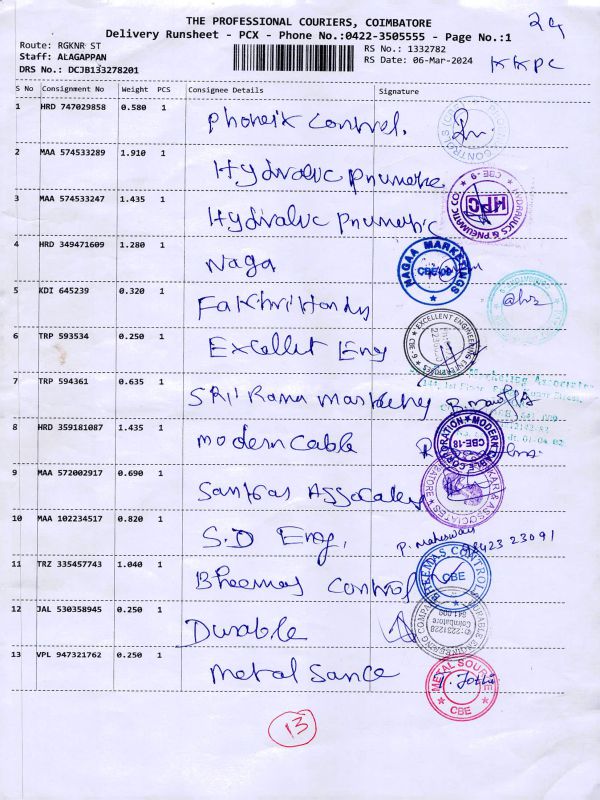 THE PROFESSIONAL COURIERS, COIMBATORE
Delivery Runsheet - PCX - Phone No.:0422-3505555 - Page No.:1
Route: RGKNR ST
RS No.: 1332782
Staff: ALAGAPPAN
RS Date: 06-Mar-2024
KKPC
DRS No.: DCJB133278201
S No Consignment No Weight PCS Consignee Details Signature
1 HRD 747029858 0.580 1 Phoneix Control.
2 MAA 574533289 1.910 1 Hydraluc Pnumetic
3 MAA 574533247 1.435 1 Hydraluc Pnumetic
HYDRAULICS & PNEUMATIC CO. CBE-9
HPC
4 HRD 349471609 1.280 1 Naga
NAGAA MARKETINGS
CBE-09
5 KDI 645239 0.320 1 Fakhri Hardy
6 TRP 593534 0.250 1 Excellet Eng
EXCELLENT ENGINEERING ENTERPRISES CBE-9
7 TRP 594361 0.635 1 SRI Rama Marketing
8 HRD 359181087 1.435 1 modern cable
MODERN CABLE CORPORATION
CBE-18
9 MAA 572002917 0.690 1 Sankras Assocates
10 MAA 102234517 0.820 1 S.D Eng.
P. Maheswari
98423 23091
11 TRZ 335457743 1.040 1 Bheemas Control
BHEEMAS CONTROLS
CBE
12 JAL 530358945 0.250 1 Durable
DURABLE ENGINEERING COMPANY
Coimbatore
13 VPL 947321762 0.250 1 metal Sance
METAL SOURCE
CBE
13